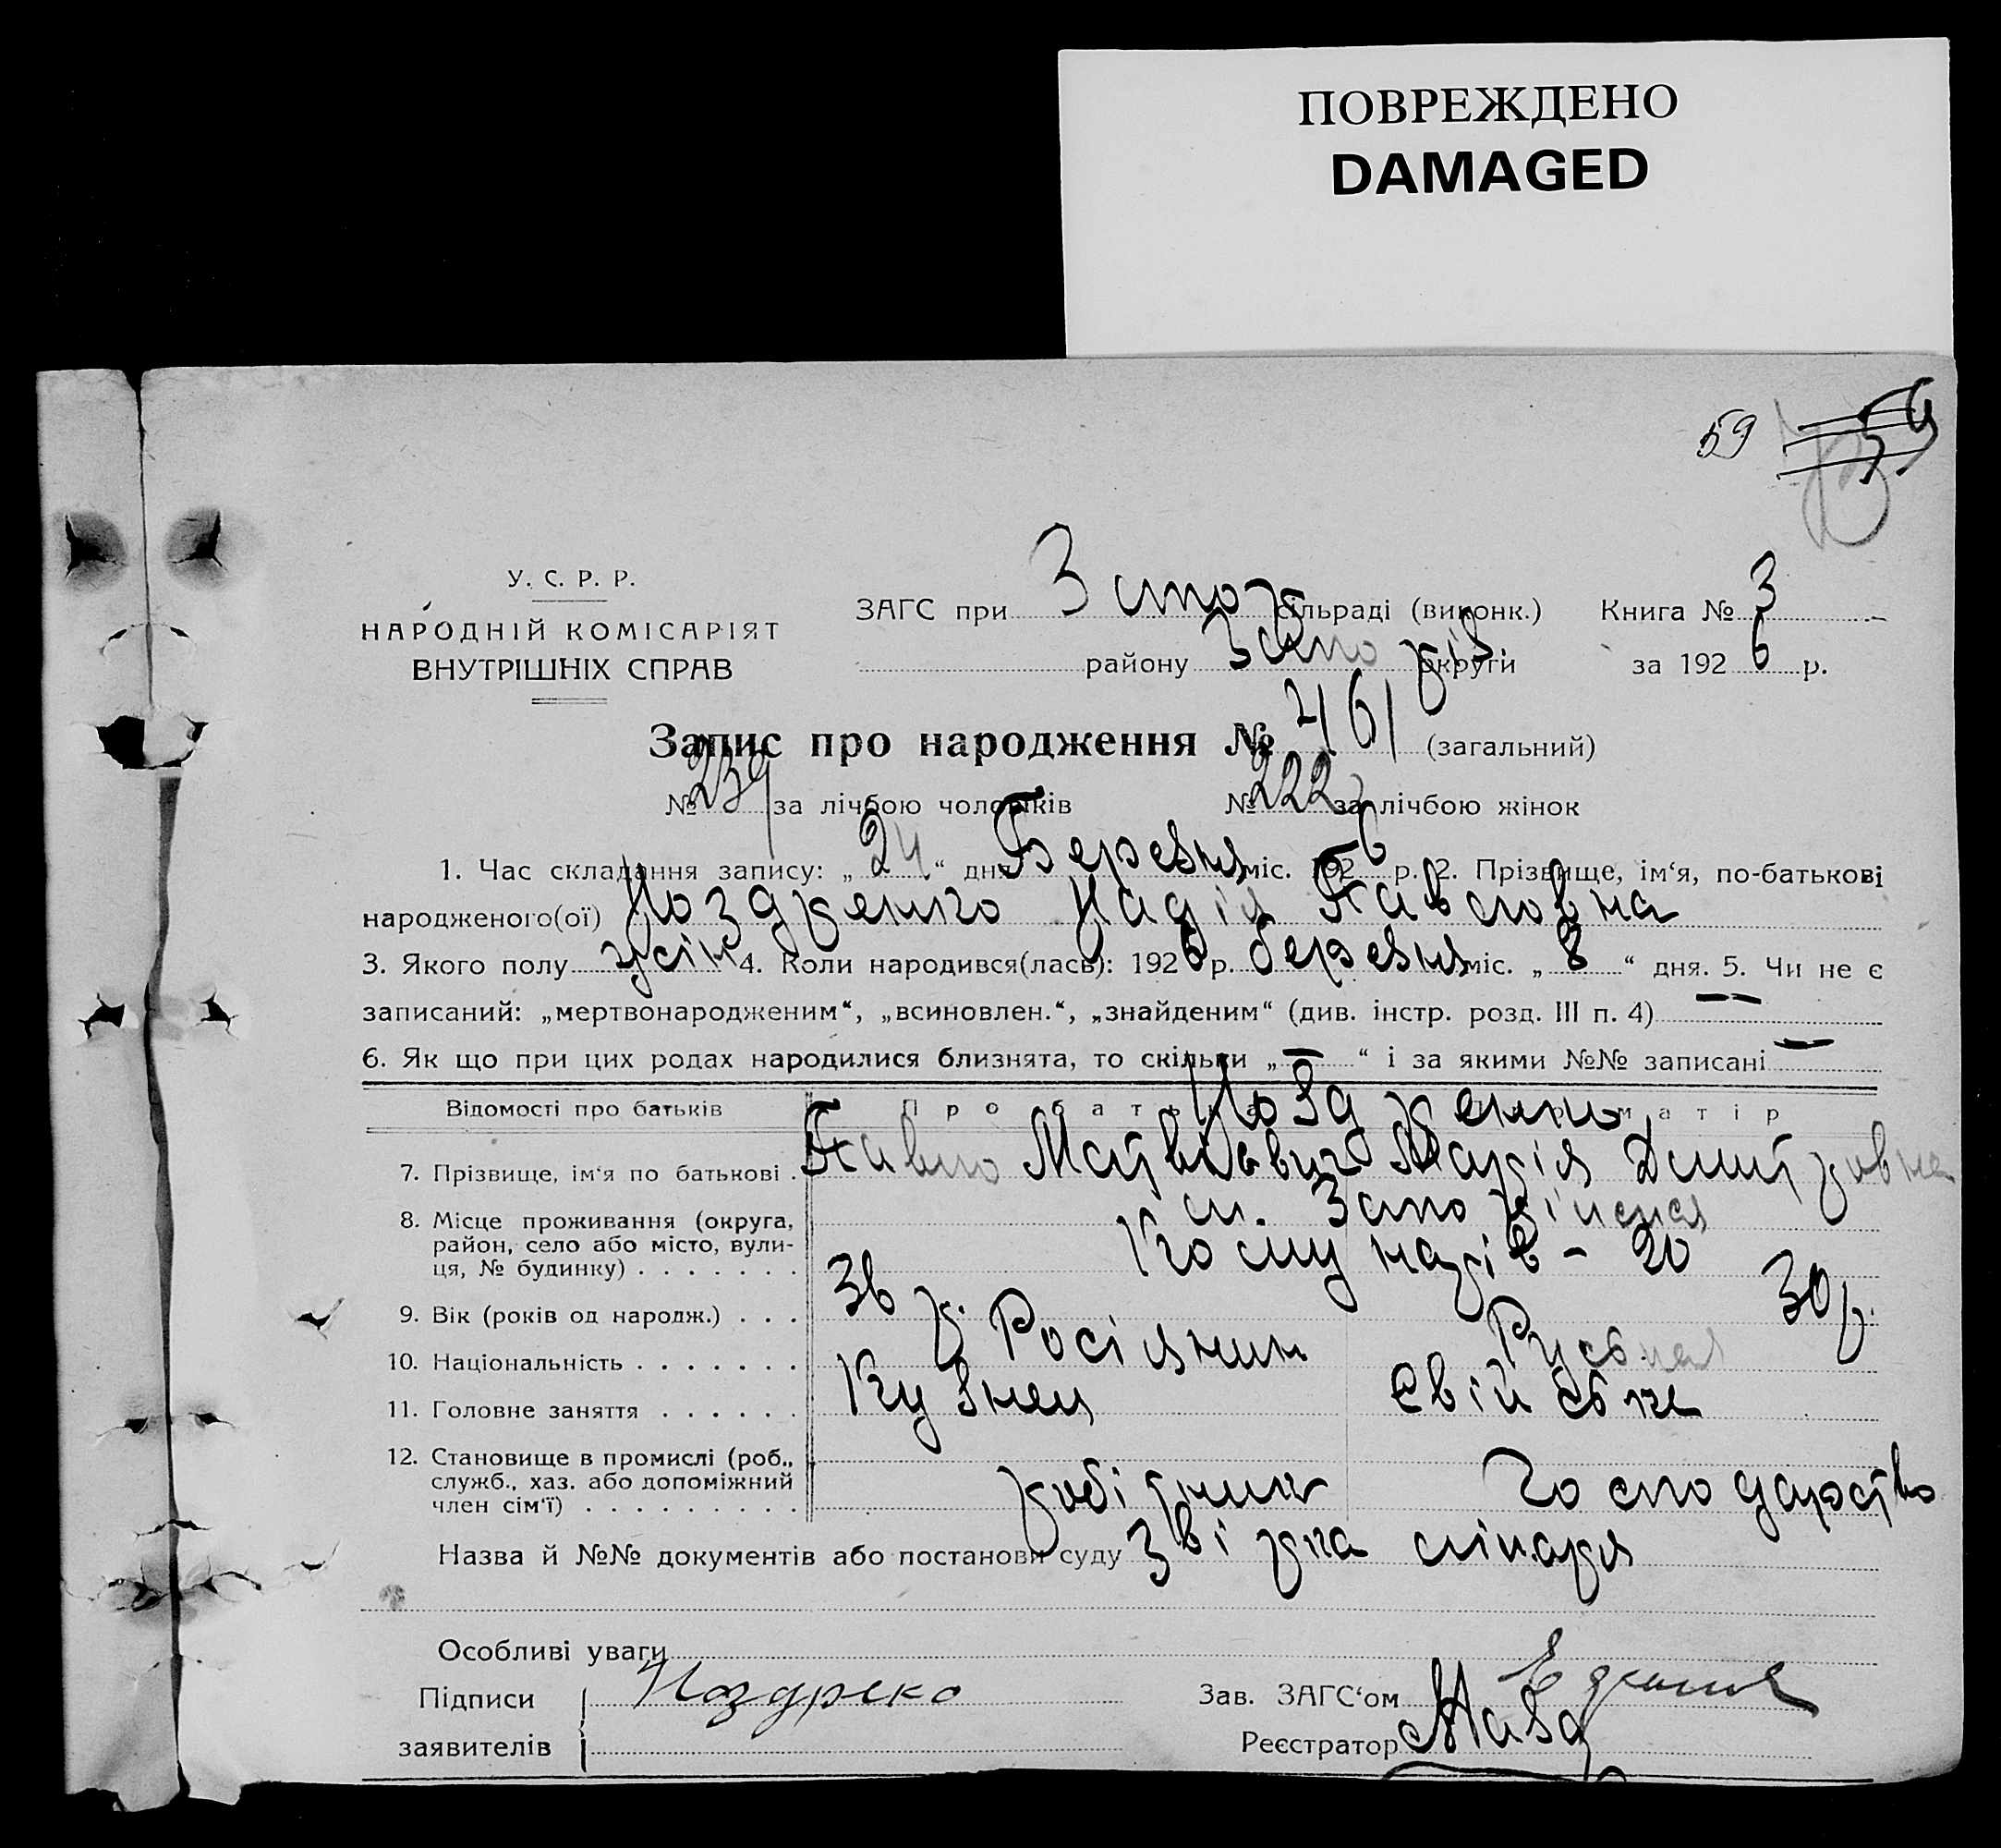 ПОВРЕЖДЕНО
DAMAGED
59 59
У. С. Р. Р.
НАРОДНІЙ КОМІСАРІЯТ
ВНУТРІШНІХ СПРАВ
ЗАГС при Запор сільраді (виконк.) Книга № 3
району Запоріз. округи за 1926 р.
Запис про народження № 461 (загальний)
№ 239 за лічбою чоловіків № 222 за лічбою жінок
1. Час складання запису: „24“ дня Березня міс. 1926 р. 2. Прізвище, ім‘я, по-батькові
народженого(ої) Ноздренко Надія Павловна
3. Якого полу жін 4. Коли народився(лась): 1926 р. березня міс. „8“ дня. 5. Чи не є
записаний: „мертвонародженим“, „всиновлен.“, „знайденим“ (див. інстр. розд. III п. 4) —
6. Як що при цих родах народилися близнята, то скільки „—“ і за якими №№ записані —
Відомості про батьків Про батька Про матір
Ноздренко
7. Прізвище, ім‘я по батькові . Павло Матвієвич Марія Дмитровна
8. Місце проживання (округа, район, село або місто, вули- ця, № будинку) . . . . . . . м. Запоріжжя
Комунарів - 20
9. Вік (років од народж.) . . . 36 р. 30 р.
10. Національність . . . . . . . Росіянин Руська
11. Головне заняття . . . . . . Кузнец Свійське
12. Становище в промислі (роб., служб., хаз. або допоміжний член сім‘ї) . . . . . . . . . робітник господарство
Назва й №№ документів або постанови суду Звірка лікаря
Особливі уваги
Підписи Ноздреко Зав. ЗАГС‘ом
заявителів Реєстратор